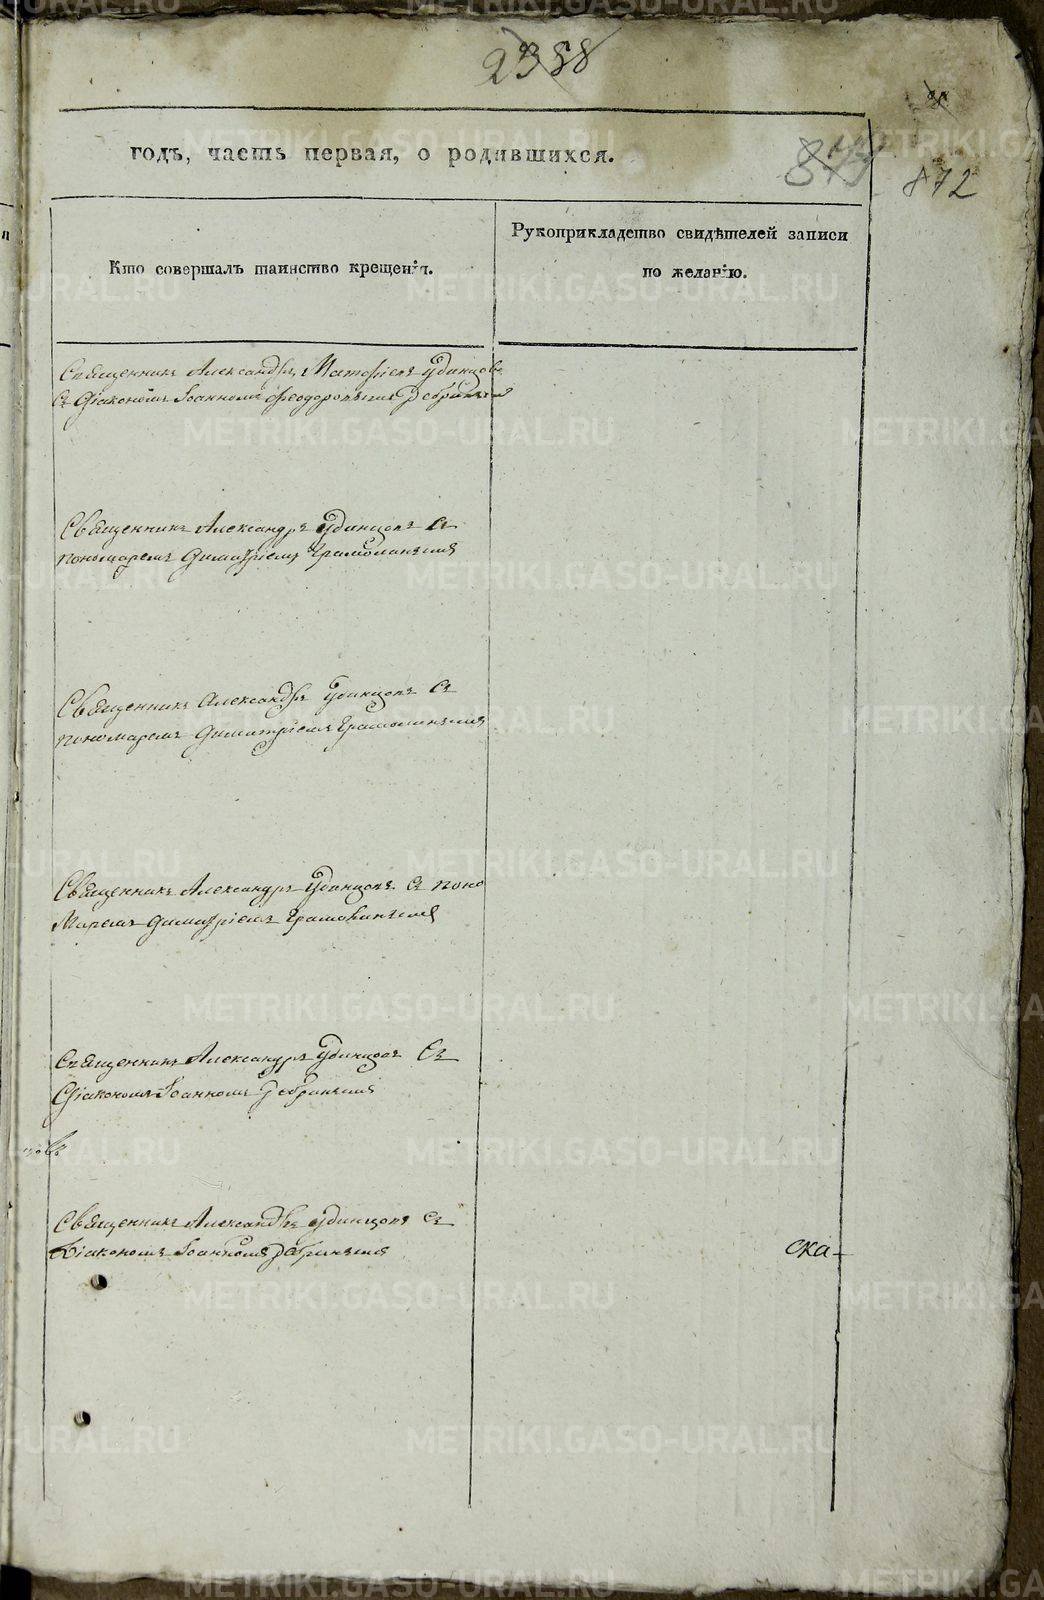 2358
годъ, часть первая, о родившихся.
872
Кто совершалъ таинство крещенія.
Рукоприкладство свидѣтелей записи
по желанію.
Священникъ Александръ Матфіевъ Удинцовъ
съ Діакономъ Іоанномъ Феодоровымъ
Священникъ Александръ Удинцовъ съ
пономаремъ Димитріемъ
Священникъ Александръ Удинцовъ съ
пономаремъ Димитріемъ
Священникъ Александръ Удинцовъ съ поно
маремъ Димитріемъ
Священникъ Александръ Удинцовъ съ
Діакономъ Іоанномъ
Священникъ Александръ Удинцовъ съ
Діакономъ Іоанномъ
ска-
METRIKI.GASO-URAL.RU